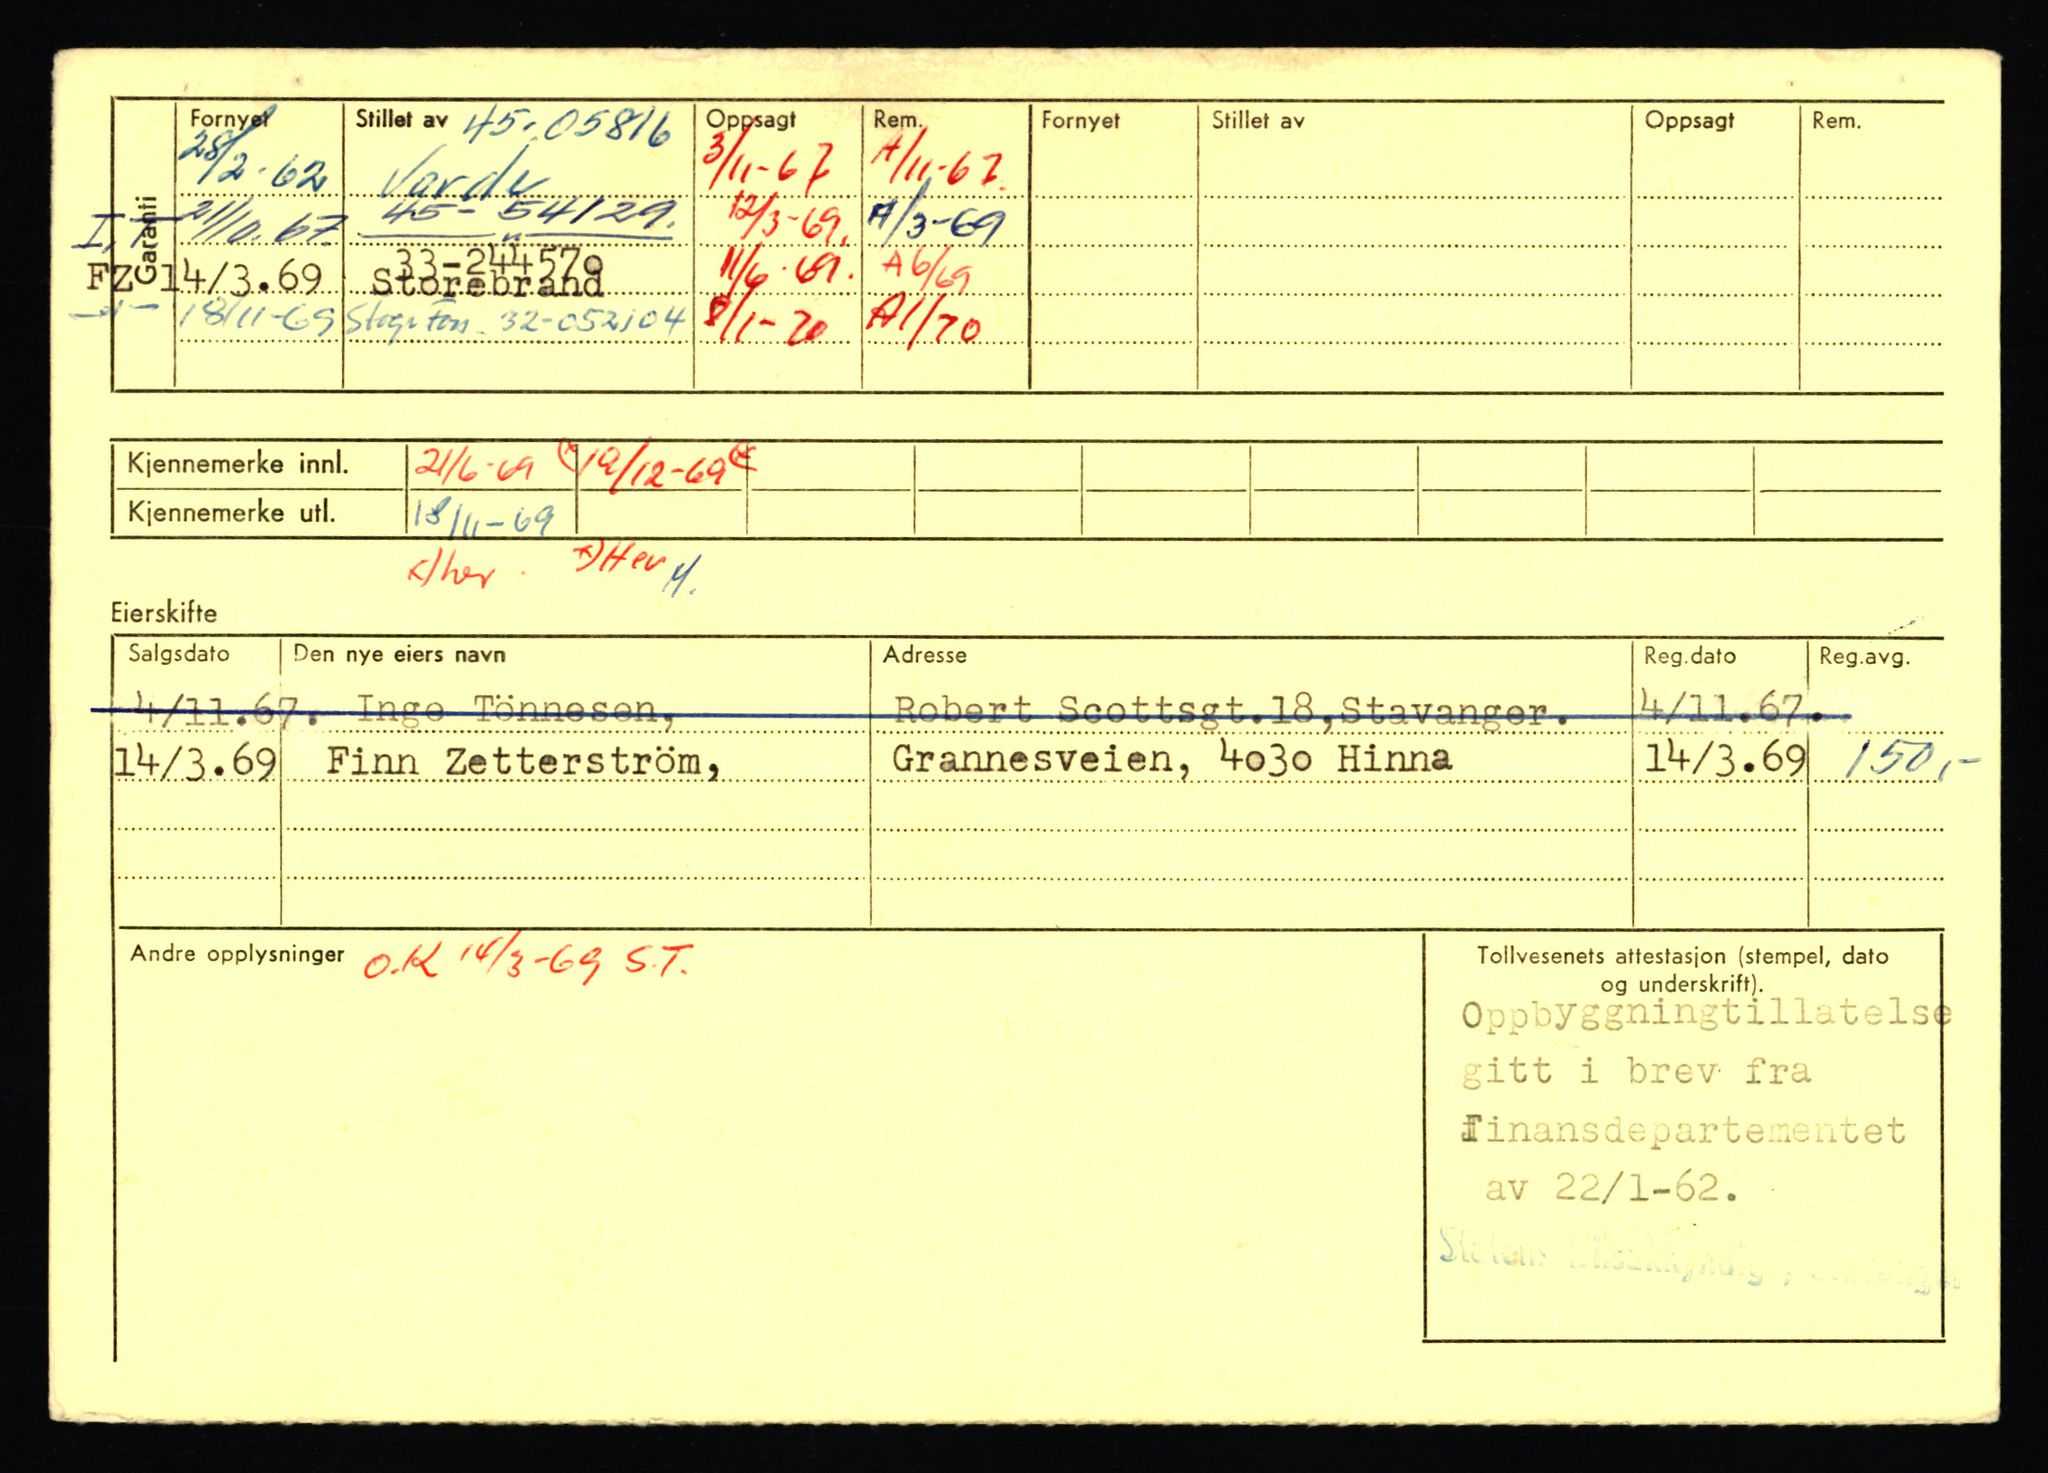 Garanti
Fornyet Stillet av 45-05816 Oppsagt Rem. Fornyet Stillet av Oppsagt Rem.
28/2-62 Vardu 3/11-67 A/11-67.
I, T 21/10.67. 45-54129. 12/3-69. A/3-69
33-244570
FZ 14/3.69 Storebrand 11/6-69. A6/69
-"- 18/11-69 32-052104 8/1-70 A1/70
Kjennemerke innl. 21/6-69 19/12-69
Kjennemerke utl. 18/11-69
x) her. x) Her
Eierskifte
Salgsdato Den nye eiers navn Adresse Reg.dato Reg.avg.
4/11.67. Inge Tönnesen, Robert Scottsgt.18,Stavanger. 4/11.67.
14/3.69 Finn Zetterström, Grannesveien, 4030 Hinna 14/3.69 150,-
Andre opplysninger O.K 14/3-69 S.T.
Tollvesenets attestasjon (stempel, dato
og underskrift).
Oppbyggningtillatelse
gitt i brev fra
Finansdepartementet
av 22/1-62.
Statens Bilsakkyndige, Stavanger